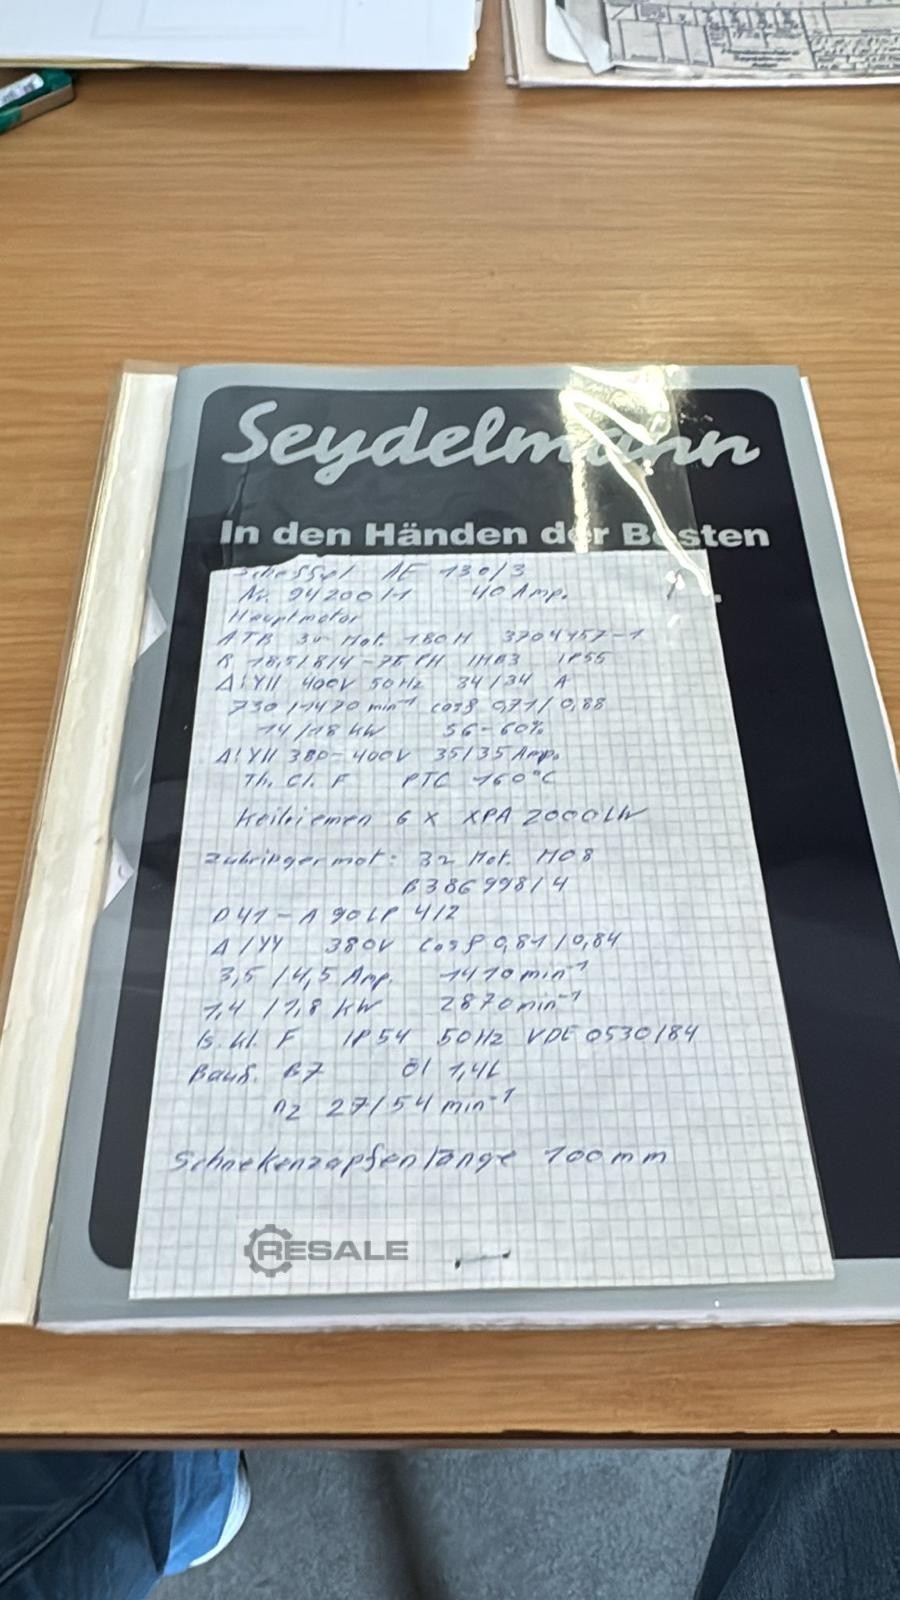 Seydelmann
In den Händen der Besten
Scheffel AE 130/3
Nr. 94200/1 40 Amp.
Hauptmotor
ATB 3~ Mot. 180M 3704457-1
R 18,5/8/4-75 PH IMB3 IP55
Δ/YII 400V 50Hz 34/34 A
730/1470 min⁻¹ cosφ 0,71/0,88
14/18 kW S6-60%
Δ/YII 380-400V 35/35 Amp.
Th. Cl. F PTC 160°C
Keilriemen 6 x XPA 2000LW
Zubringermot: 3~ Mot. M08
B386998/4
D41-A90LP 4/2
Δ/YY 380V cosφ 0,81/0,84
3,5/4,5 Amp. 1410min⁻¹
1,4/1,8 kW 2870min⁻¹
Is. Kl. F IP54 50Hz VDE 0530/84
Bauf. B7 Öl 1,4L
n2 27/54 min⁻¹
Schnekenzapfenlänge 100mm
RESALE